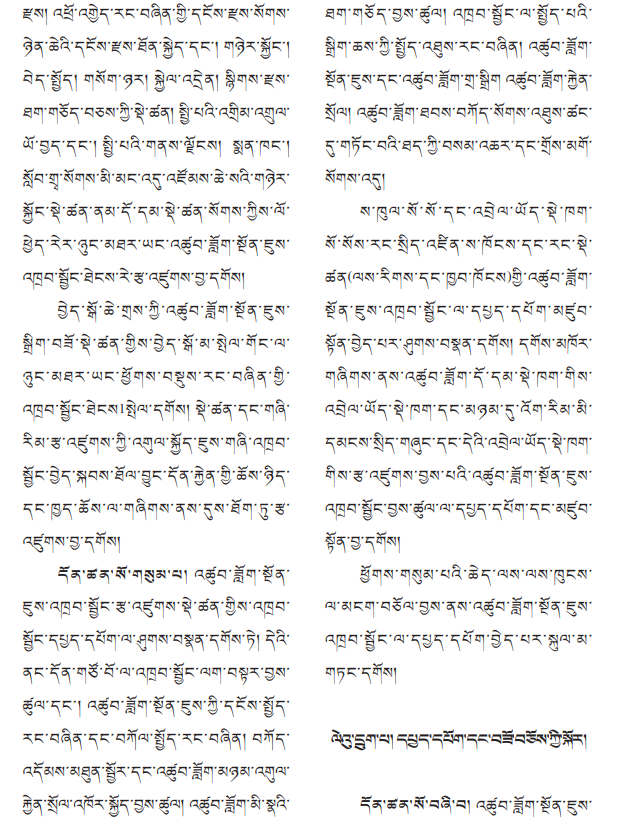 རྫས། འཕྲོ་འགྱེད་རང་བཞིན་གྱི་དངོས་རྫས་སོགས་
ཉེན་ཆེའི་དངོས་རྫས་ཐོན་སྐྱེད་དང་། གཉེར་སྐྱོང་།
བེད་སྤྱོད། གསོག་ཉར། སྐྱེལ་འདྲེན། སྙིགས་རྫས་
ཐག་གཅོད་བཅས་ཀྱི་སྡེ་ཚན། སྤྱི་པའི་འགྲིམ་འགྲུལ་
ཡོ་བྱད་དང་། སྤྱི་པའི་གནས་ལྗོངས། སྨན་ཁང་།
སློབ་གྲྭ་སོགས་མི་མང་འདུ་འཛོམས་ཆེ་སའི་གཉེར་
སྐྱོང་སྡེ་ཚན་ནམ་དོ་དམ་སྡེ་ཚན་སོགས་ཀྱིས་ལོ་
ཕྱེད་རེར་ཉུང་མཐར་ཡང་འཚུབ་ཟློག་སྔོན་ཇུས་
འཁྲབ་སྦྱོང་ཐེངས་རེ་རྩ་འཛུགས་བྱ་དགོས།
བྱེད་སྒོ་ཆེ་གྲས་ཀྱི་འཚུབ་ཟློག་སྔོན་ཇུས་
སྒྲིག་བཟོ་སྡེ་ཚན་གྱིས་བྱེད་སྒོ་མ་སྤེལ་གོང་ལ་
ཉུང་མཐར་ཡང་ཕྱོགས་བསྡུས་རང་བཞིན་གྱི་
འཁྲབ་སྦྱོང་ཐེངས1སྤེལ་དགོས། སྡེ་ཚན་དང་གཞི་
རིམ་རྩ་འཛུགས་ཀྱི་འགུལ་སྐྱོད་ཇུས་གཞི་འཁྲབ་
སྦྱོང་བྱེད་སྐབས་ཐོལ་བྱུང་དོན་རྐྱེན་གྱི་ཆོས་ཉིད་
དང་ཁྱད་ཆོས་ལ་གཞིགས་ནས་དུས་ཐོག་ཏུ་རྩ་
འཛུགས་བྱ་དགོས།
དོན་ཚན་སོ་གསུམ་པ། འཚུབ་ཟློག་སྔོན་
ཇུས་འཁྲབ་སྦྱོང་རྩ་འཛུགས་སྡེ་ཚན་གྱིས་འཁྲབ་
སྦྱོང་དཔྱད་དཔོག་ལ་ཤུགས་བསྣན་དགོས་ཏེ། དེའི་
ནང་དོན་གཙོ་བོ་ལ་འཁྲབ་སྦྱོང་ལག་བསྟར་བྱས་
ཚུལ་དང་། འཚུབ་ཟློག་སྔོན་ཇུས་ཀྱི་དངོས་སྤྱོད་
རང་བཞིན་དང་བཀོལ་སྤྱོད་རང་བཞིན། བཀོད་
འདོམས་མཐུན་སྦྱོར་དང་འཚུབ་ཟློག་མཉམ་འགུལ་
རྐྱེན་སྲོལ་འཁོར་སྐྱོད་བྱས་ཚུལ། འཚུབ་ཟློག་མི་སྣའི་
ཐག་གཅོད་བྱས་ཚུལ། འཁྲབ་སྦྱོང་ལ་སྤྱོད་པའི་
སྒྲིག་ཆས་ཀྱི་སྤྱོད་འཐུས་རང་བཞིན། འཚུབ་ཟློག་
སྔོན་ཇུས་དང་འཚུབ་ཟློག་གྲ་སྒྲིག འཚུབ་ཟློག་རྐྱེན་
སྲོལ། འཚུབ་ཟློག་ཐབས་བཀོད་སོགས་འཐུས་ཚང་
དུ་གཏོང་བའི་ཐད་ཀྱི་བསམ་འཆར་དང་གྲོས་མགོ་
སོགས་འདུ།
ས་ཁུལ་སོ་སོ་དང་འབྲེལ་ཡོད་སྡེ་ཁག་
སོ་སོས་རང་སྲིད་འཛིན་ས་ཁོངས་དང་རང་སྡེ་
ཚན(ལས་རིགས་དང་ཁྱབ་ཁོངས)གྱི་འཚུབ་ཟློག་
སྔོན་ཇུས་འཁྲབ་སྦྱོང་ལ་དཔྱད་དཔོག་མཛུབ་
སྟོན་བྱེད་པར་ཤུགས་བསྣན་དགོས། དགོས་མཁོར་
གཞིགས་ནས་འཚུབ་ཟློག་དོ་དམ་སྡེ་ཁག་གིས་
འབྲེལ་ཡོད་སྡེ་ཁག་དང་མཉམ་དུ་འོག་རིམ་མི་
དམངས་སྲིད་གཞུང་དང་དེའི་འབྲེལ་ཡོད་སྡེ་ཁག་
གིས་རྩ་འཛུགས་བྱས་པའི་འཚུབ་ཟློག་སྔོན་ཇུས་
འཁྲབ་སྦྱོང་བྱས་ཚུལ་ལ་དཔྱད་དཔོག་དང་མཛུབ་
སྟོན་བྱ་དགོས།
ཕྱོགས་གསུམ་པའི་ཆེད་ལས་ལས་ཁུངས་
ལ་མངག་བཅོལ་བྱས་ནས་འཚུབ་ཟློག་སྔོན་ཇུས་
འཁྲབ་སྦྱོང་ལ་དཔྱད་དཔོག་བྱེད་པར་སྐུལ་མ་
གཏང་དགོས།
ལེའུ་དྲུག་པ། དཔྱད་དཔོག་དང་བཟོ་བཅོས་ཀྱི་སྐོར།
དོན་ཚན་སོ་བཞི་བ། འཚུབ་ཟློག་སྔོན་ཇུས་